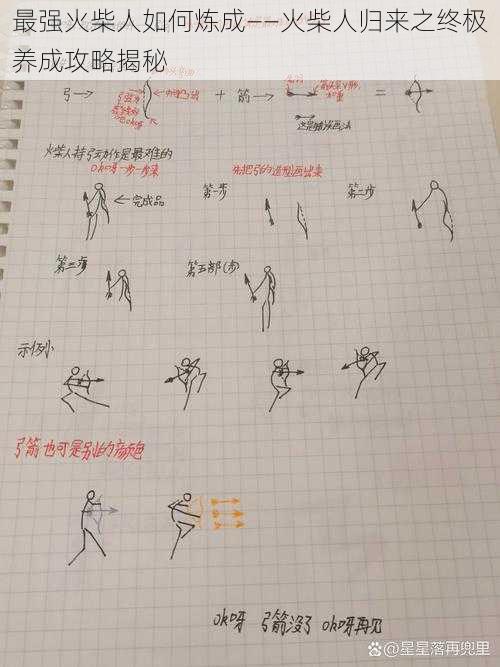 最强火柴人如何炼成——火柴人归来之终极
养成攻略揭秘
弓→ + 箭→ =
火柴人持弓动作是最难的
ok呀一步一步来
先把弓的造型画出来
←完成品
第一步
第二步
第三步
第五部(步)
示例
弓箭也可是别的颜色
ok呀 弓箭没了 ok呀再见
@星星落再兜里